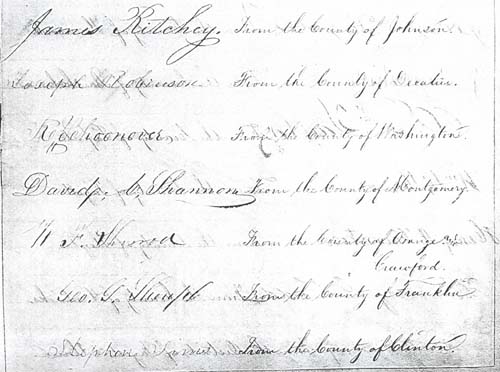 James Ritchey. From the County of Johnson.
Joseph Robinson From the County of Decatur.
R Schoonover From the County of Washington.
David A. Shannon From the County of Montgomery.
H F. Sherrod From the County of Orange &
Crawford.
Geo. G. Shoup From the County of Franklin
Stephen Sims From the County of Clinton.